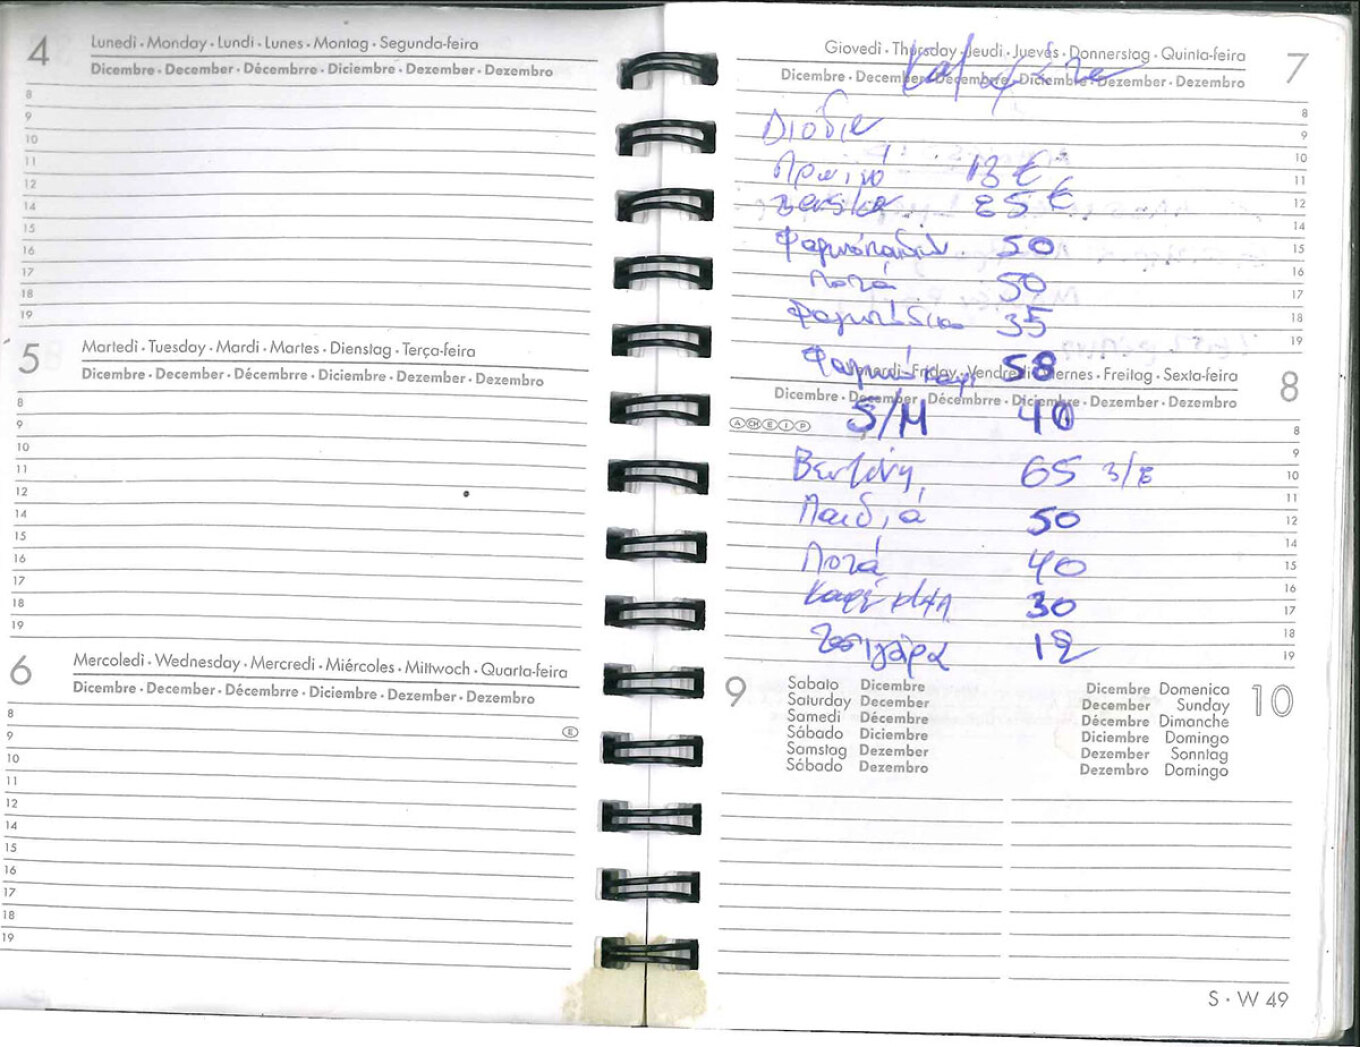 4
Lunedì · Monday · Lundi · Lunes · Montag · Segunda-feira
Dicembre · December · Décembrre · Diciembre · Dezember · Dezembro
8
9
10
11
12
14
15
16
17
18
19
5
Martedì · Tuesday · Mardi · Martes · Dienstag · Terça-feira
Dicembre · December · Décembrre · Diciembre · Dezember · Dezembro
8
9
10
11
12
14
15
16
17
18
19
6
Mercoledì · Wednesday · Mercredi · Miércoles · Mittwoch · Quarta-feira
Dicembre · December · Décembrre · Diciembre · Dezember · Dezembro
8
9
E
10
11
12
14
15
16
17
18
19
Giovedì · Thursday · Jeudi · Jueves · Donnerstag · Quinta-feira
7
Dicembre · December · Décembrre · Diciembre · Dezember · Dezembro
8
Διόδια
9
10
Πρωινό 13 €
11
25 €
12
14
50
15
16
Ποτά 50
17
35
18
19
58
Friday · Vendredi · Viernes · Freitag · Sexta-feira
8
Dicembre · December · Décembrre · Diciembre · Dezember · Dezembro
A CH E I P
S/M 40
8
9
Βενζίνη 65
10
11
Παιδιά 50
12
14
Ποτά 40
15
16
Καφέ 30
17
18
Τσιγάρα 12
19
9
Sabato Dicembre
Saturday December
Samedi Décembre
Sábado Diciembre
Samstag Dezember
Sóbado Dezembro
Dicembre Domenica
10
December Sunday
Décembre Dimanche
Diciembre Domingo
Dezember Sonntag
Dezembro Domingo
S · W 49